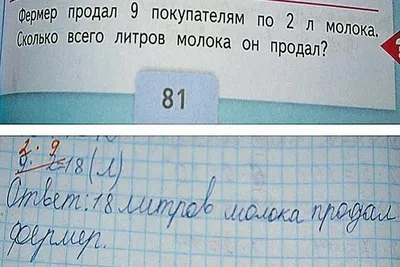 Фермер продал 9 покупателям по 2 л молока.
Сколько всего литров молока он продал?
81
2 · 9
9 · 2=18(л)
Ответ: 18 литров молока продал
фермер.